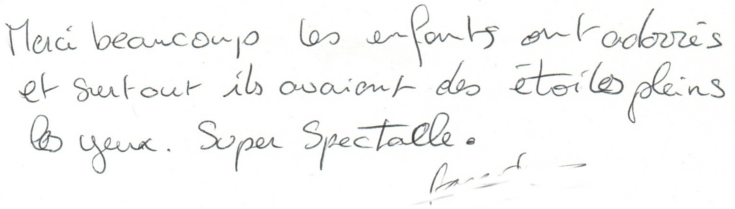 Merci beaucoup les enfants ont adorrés
et surtout ils avaient des étoiles pleins
les yeux. Super Spectalle.